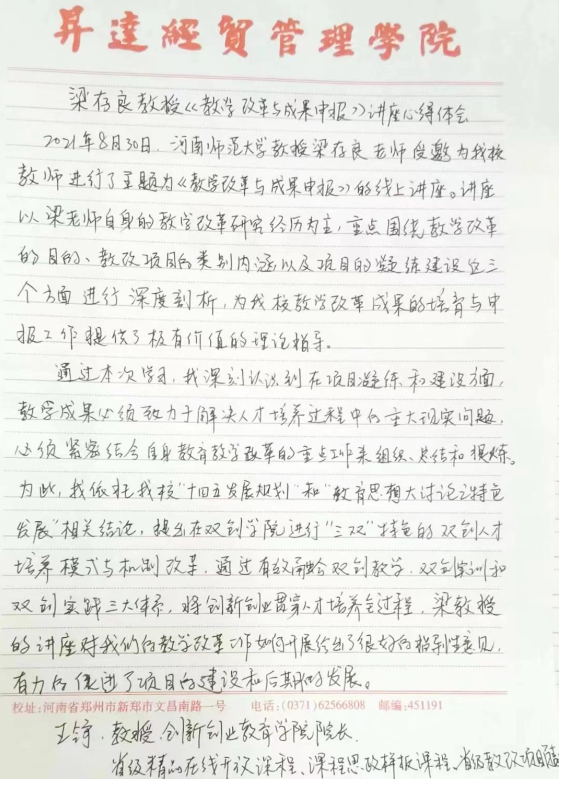 昇達經貿管理學院
梁存良教授《教学改革与成果申报》讲座心得体会
2021年8月30日,河南师范大学教授梁存良老师受邀为我校
教师进行了主题为《教学改革与成果申报》的线上讲座。讲座
以梁老师自身的教学改革研究经历为主,重点围绕教学改革
的目的、教改项目的类别内涵以及项目的凝练建设这三
个方面进行深度剖析,为我校教学改革成果的培育与申
报工作提供了极有价值的理论指导。
通过本次学习,我深刻认识到在项目凝练和建设方面,
教学成果必须致力于解决人才培养过程中的重大现实问题,
必须紧密结合自身教育教学改革的重点工作来组织、总结和提炼。
为此,我依托我校"十四五发展规划"和"教育思想大讨论之特色
发展"相关结论,提出在双创学院进行"三双"特色的双创人才
培养模式与机制改革,通过有效融合双创教学、双创实训和
双创实践三大体系,将创新创业贯穿人才培养全过程,梁教授
的讲座对我们的教学改革工作如何开展给出了很好的指导性意见,
有力的促进了项目的建设和后期的发展。
校址:河南省郑州市新郑市文昌南路一号 电话:(0371)62566808 邮编:451191
王 教授,创新创业教育学院院长,
省级精品在线开放课程、课程思政样板课程、省级教改项目